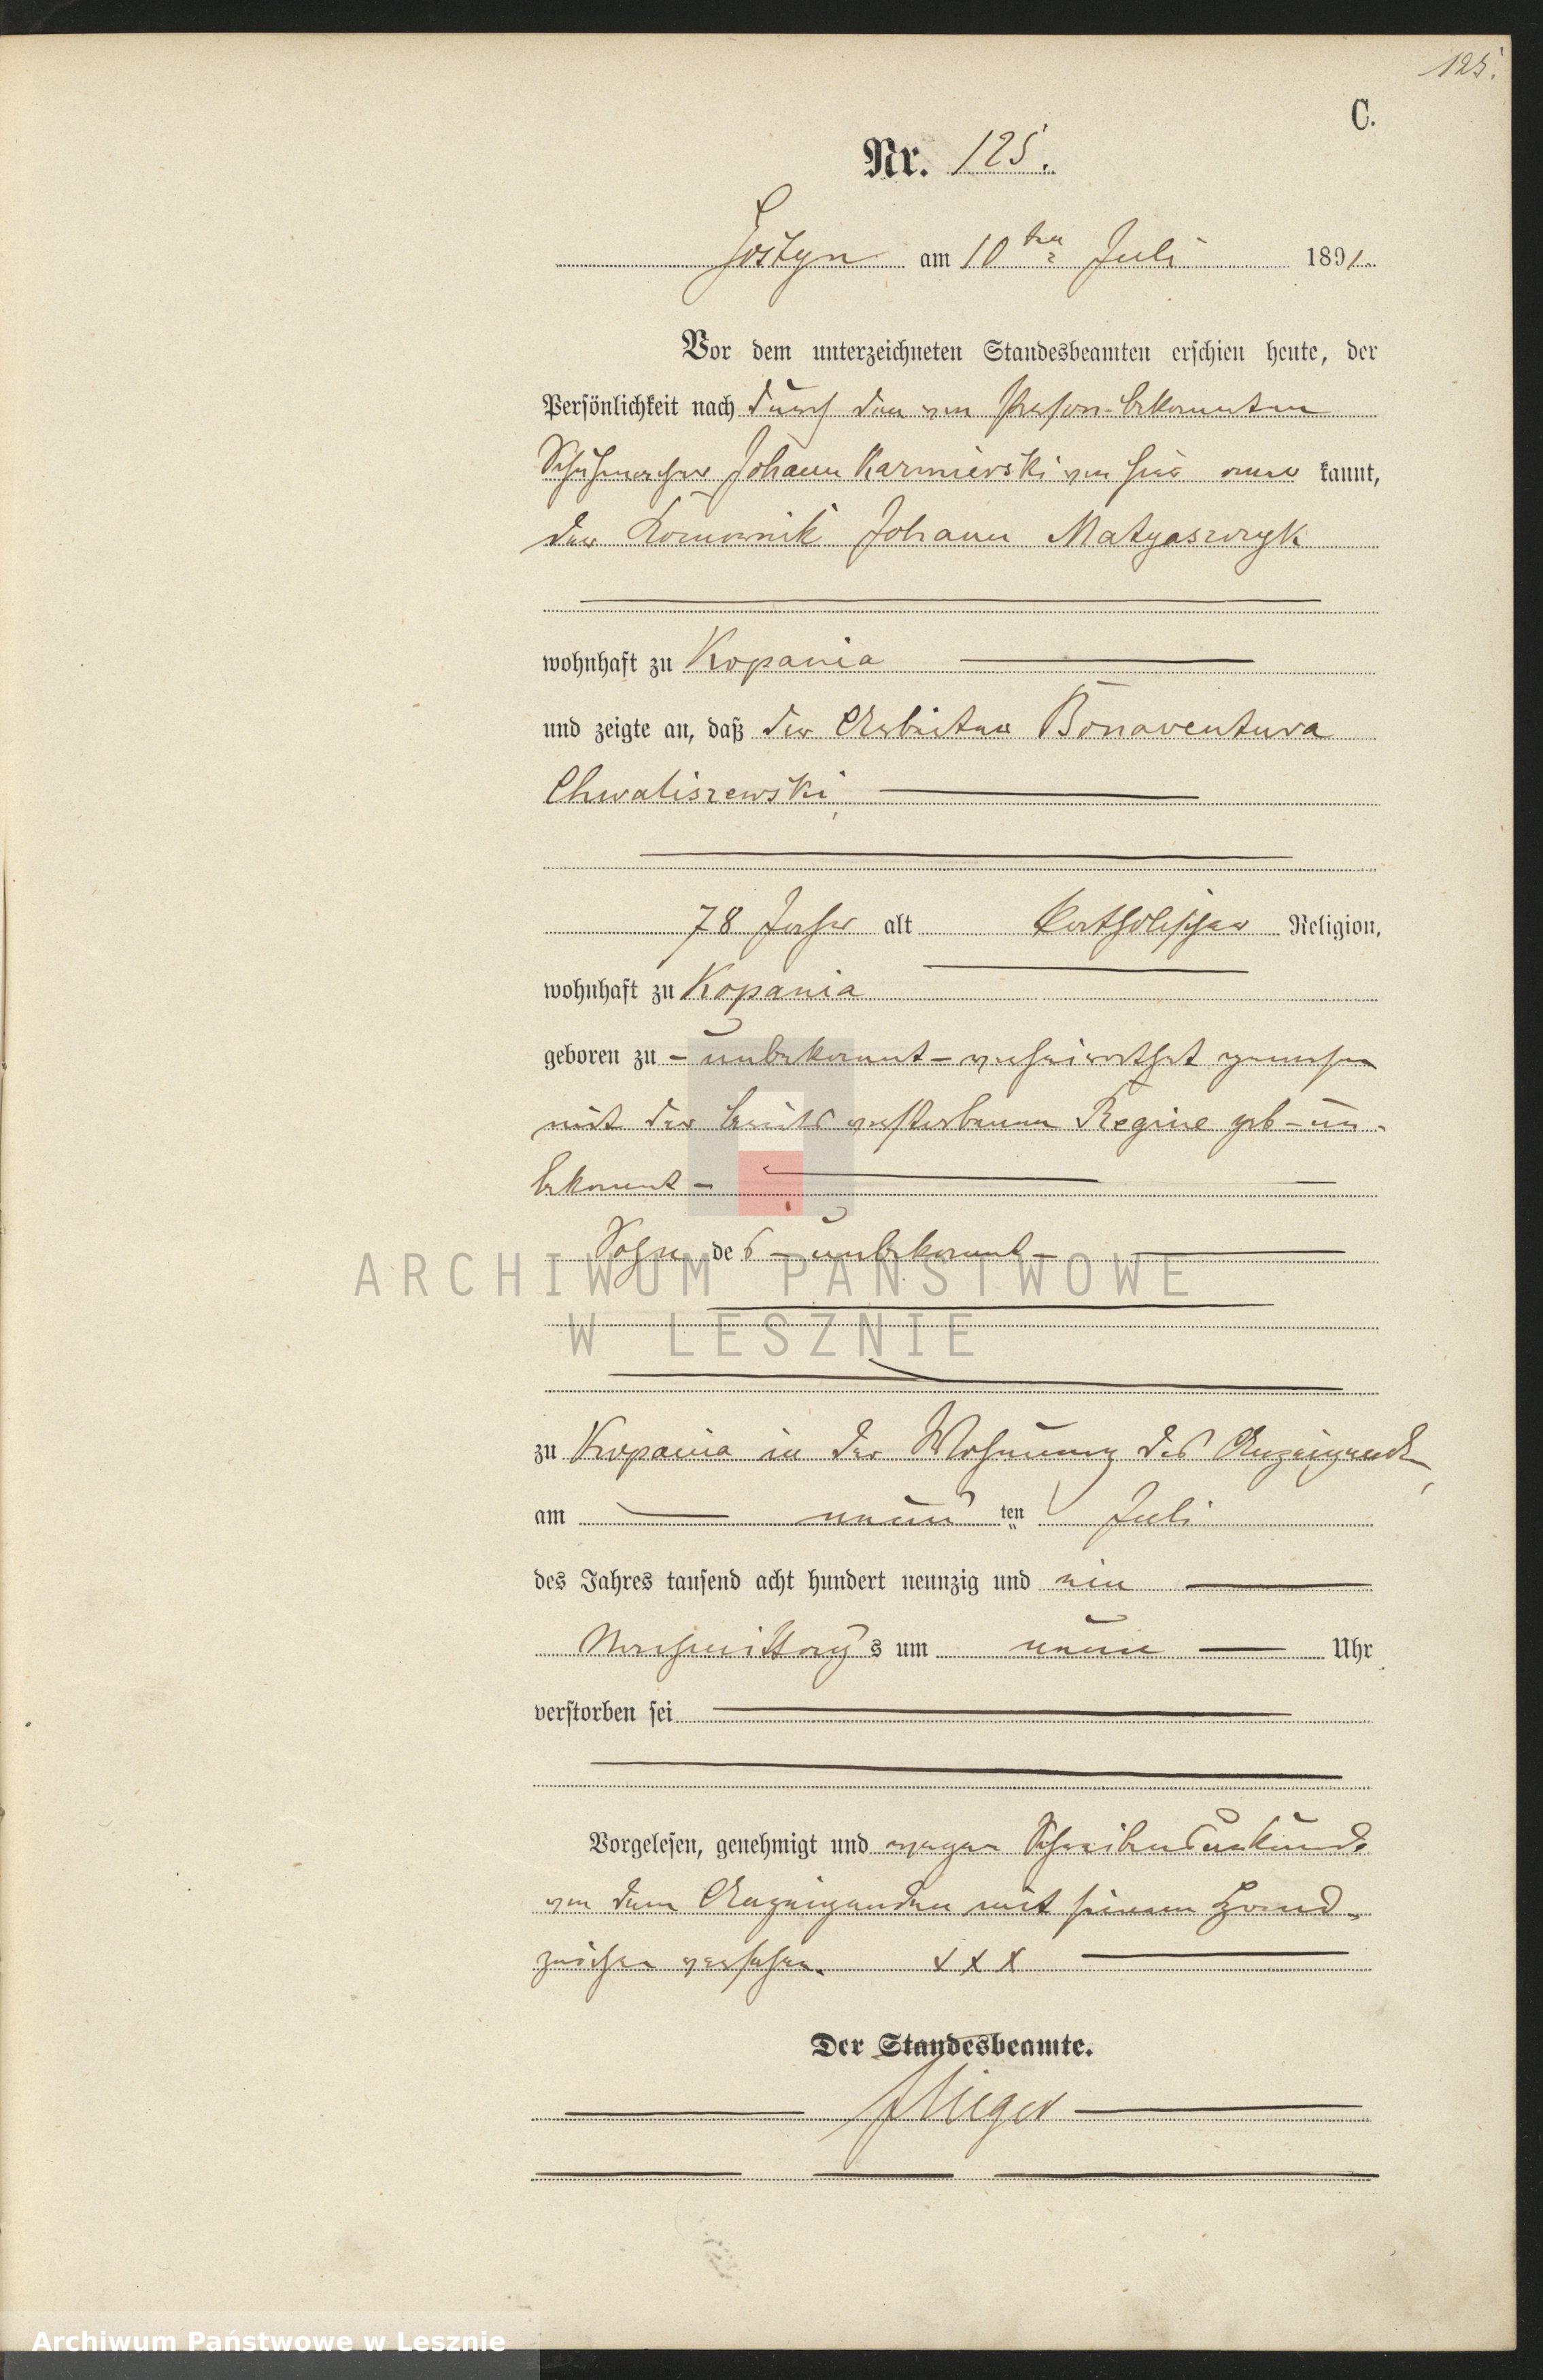 125.
C.
Nr. 125.
Gostyn am 10ten Juli 1891.
Vor dem unterzeichneten Standesbeamten erschien heute, der
Persönlichkeit nach durch den von Person bekannten
Schuhmacher Johann Karmierski von hier aner kannt,
der Komornik Johann Matyaszczyk
wohnhaft zu Kopania
und zeigte an, daß der Arbeiter Bonaventura
Chwaliszewski,
78 Jahre alt katholischer Religion,
wohnhaft zu Kopania
geboren zu - unbekannt - verheirathet gewesen
mit der bereits verstorbenen Regine geb - un-
bekannt -
Sohn des - unbekannt -
ARCHIWUM PAŃSTWOWE
W LESZNIE
zu Kopania in der Wohnung des Anzeigenden,
am neun ten Juli
des Jahres tausend acht hundert neunzig und ein
Nachmittags um neun Uhr
verstorben sei
Vorgelesen, genehmigt und wegen Schreibensunkunde
von dem Anzeigenden mit seinem Hand-
zeichen versehen. x x x
Der Standesbeamte.
Archiwum Państwowe w Lesznie